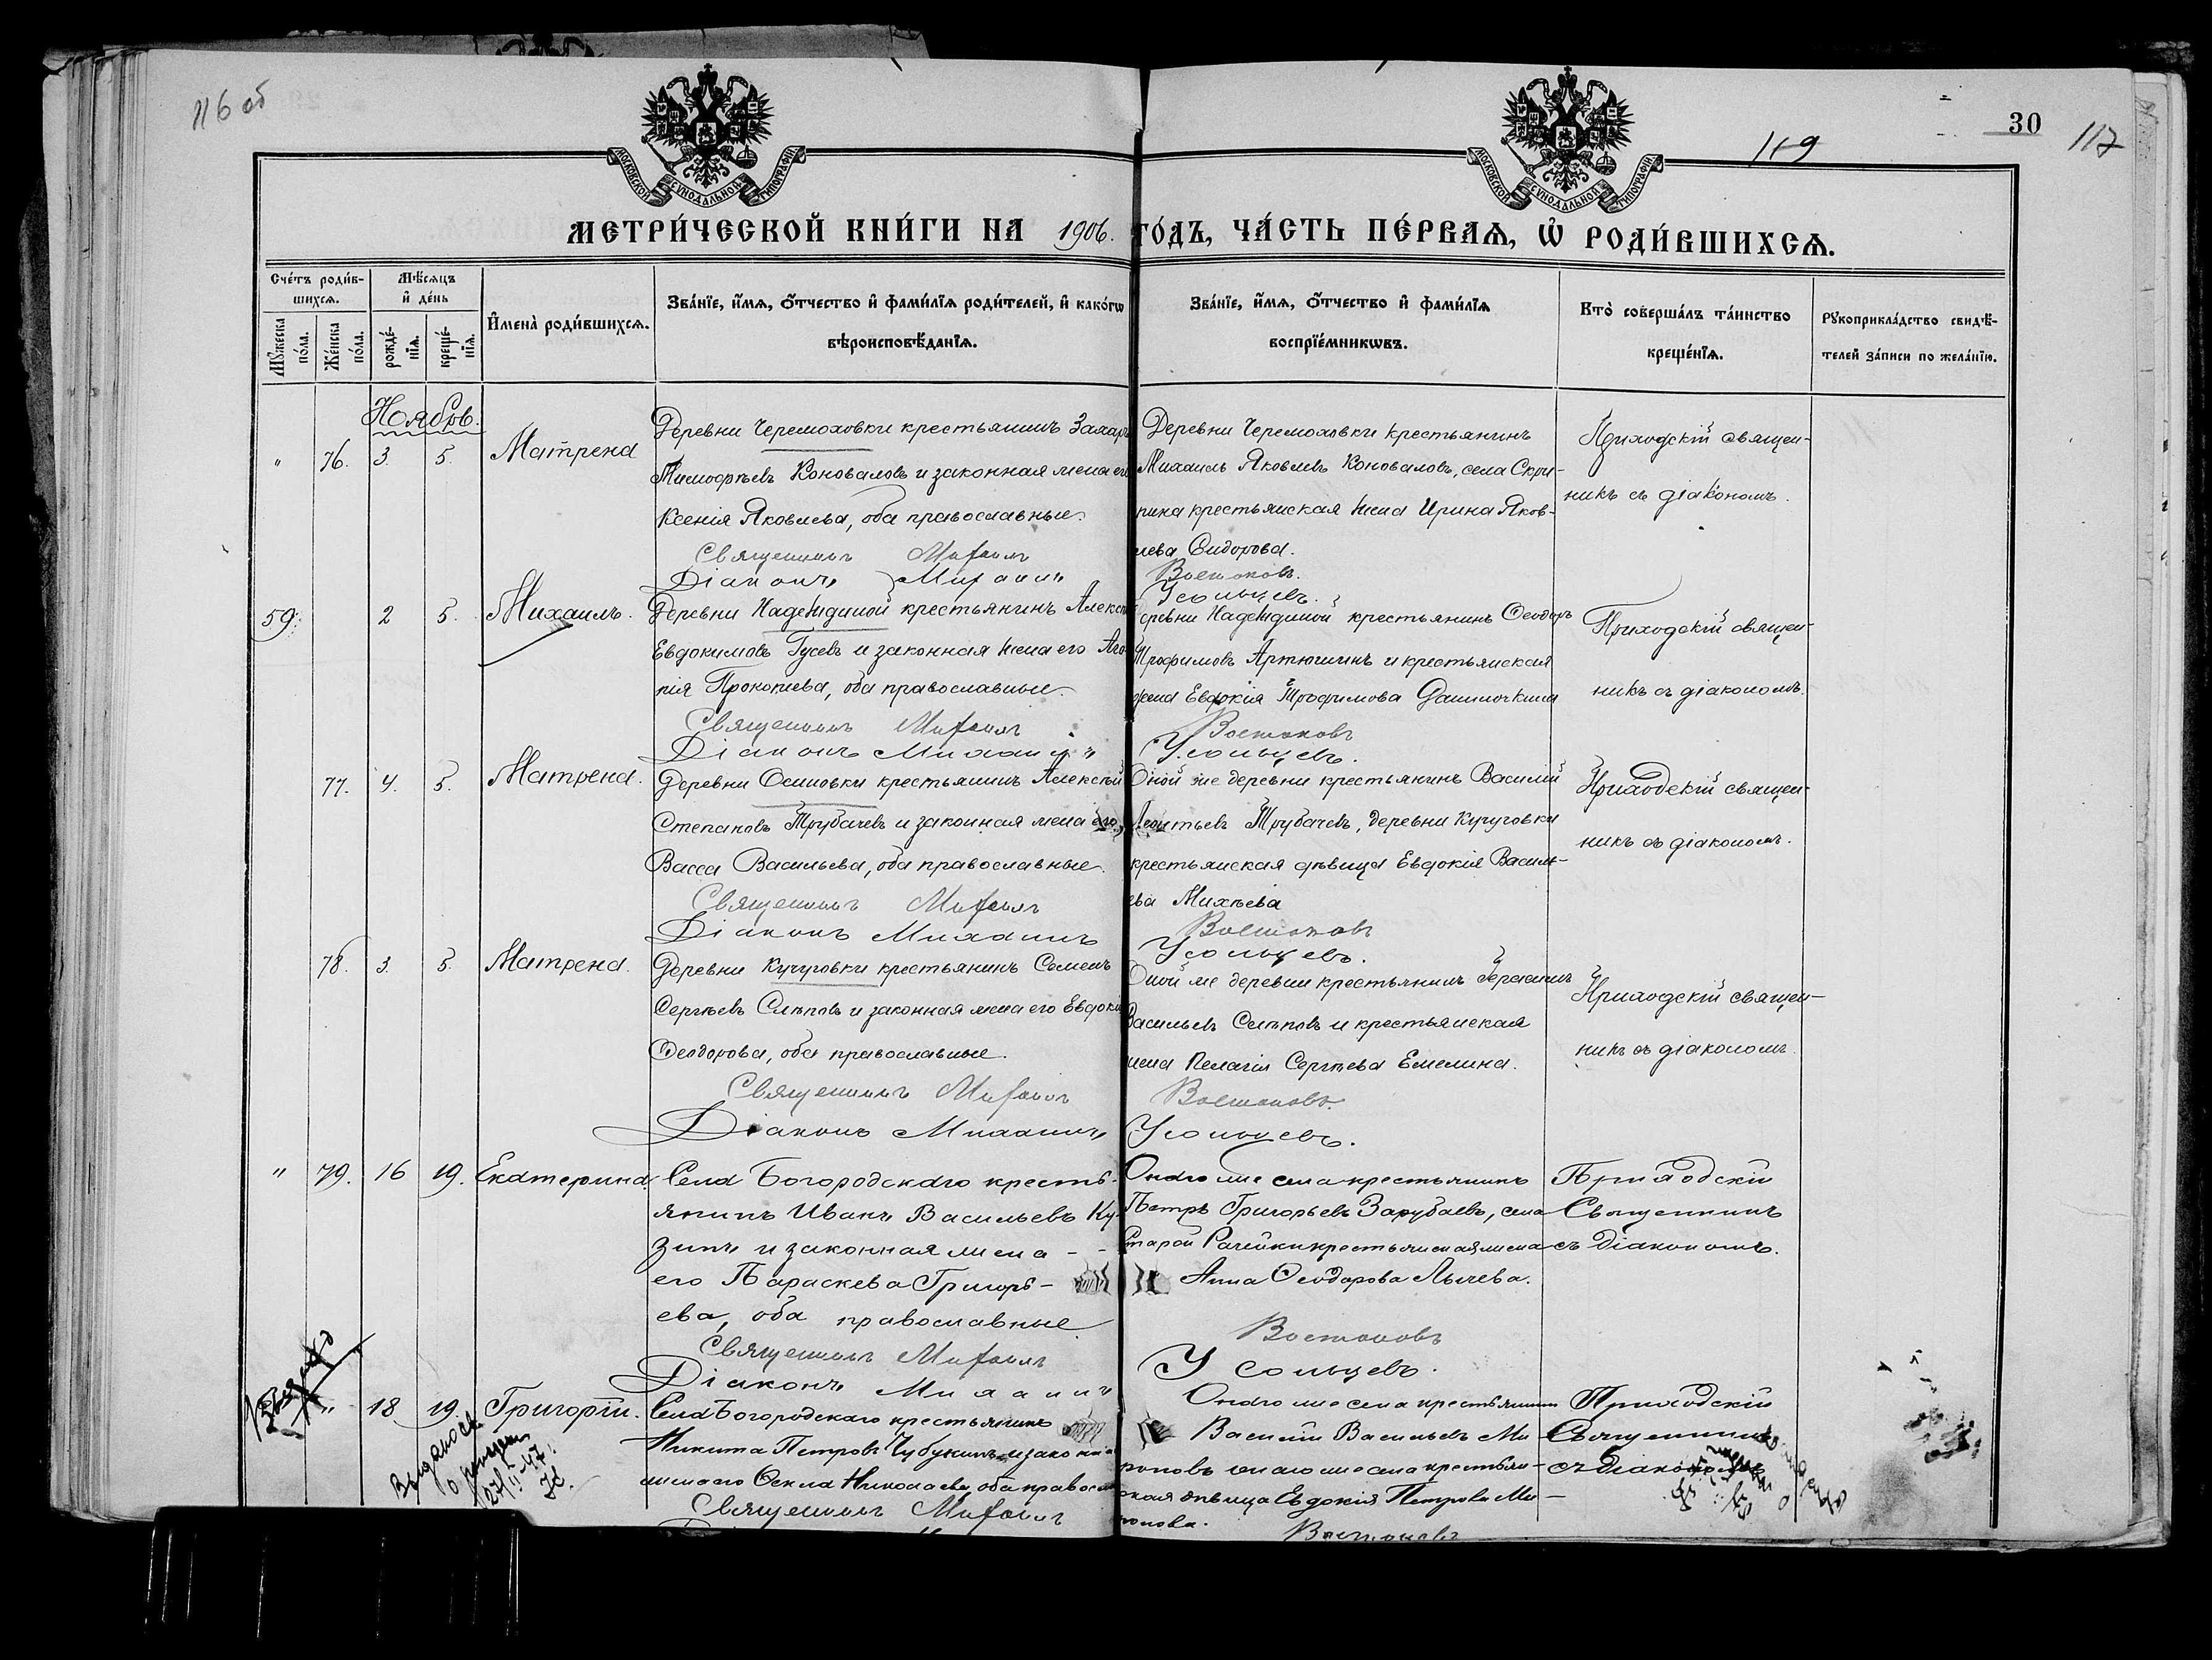 116 об
МОСКОВСКОЙ СѴНОДАЛЬНОЙ ТИПОГРАФІИ
МОСКОВСКОЙ СѴНОДАЛЬНОЙ ТИПОГРАФІИ
119
30
117
МЕТРИ́ЧЕСКОЙ КНИ́ГИ НА 1906. ГО́ДЪ, ЧА́СТЬ ПЕ́РВАѦ, Ѡ҆ РОДИ́ВШИХСѦ.
Сче́тъ роди́в-
шихсѧ.
Мꙋ́жеска по́ла.
Же́нска по́ла.
Мѣ́сѧцъ
и҆ де́нь
рожде́-нїѧ.
креще́-нїѧ.
И҆мена̀ роди́вшихсѧ.
Зва́нїе, и҆́мѧ, ѻ҆́тчество и҆ фами́лїѧ роди́телей, и҆ како́гѡ
вѣроисповѣ́данїѧ.
Зва́нїе, и҆́мѧ, ѻ҆́тчество и҆ фами́лїѧ
воспрїе́мникѡвъ.
Кто̀ соверша́лъ та́инство
креще́нїѧ.
Рꙋкоприкла́дство свидѣ́-
телей за́писи по жела́нїю.
Ноябрь.
" 76. 3. 5. Матрена
Деревни Черемоховки крестьянинъ Захаръ
Тимофѣевъ Коноваловъ и законная жена его
Ксенія Яковлева, оба православные.
Священникъ Михаилъ
Діаконъ Михаилъ
Деревни Черемоховки крестьянинъ
Михаилъ Яковлевъ Коноваловъ, села Скри-
пина крестьянская жена Ирина Яков-
лева Сидорова.
Востоковъ.
Усольцевъ.
Приходскій священ-
никъ съ діакономъ.
59. 2 5. Михаилъ.
Деревни Надеждиной крестьянинъ Алексѣй
Евдокимовъ Гусевъ и законная жена его Ага-
пія Прокопіева, оба православные.
Священникъ Михаилъ
Діаконъ Михаилъ
Деревни Надеждиной крестьянинъ Ѳеодоръ
Трофимовъ Артюшинъ и крестьянская
жена Евдокія Трофимова
Востоковъ
Усольцевъ.
Приходскій священ-
никъ съ діакономъ.
77. 4. 5. Матрена.
Деревни Осиповки крестьянинъ Алексѣй
Степановъ Трубачевъ и законная жена его,
Васса Васильева, оба православные.
Священникъ Михаилъ
Діаконъ Михаилъ
Оной же деревни крестьянинъ Василій
Леонтьевъ Трубачевъ, деревни Кучуговки
крестьянская дѣвица Евдокія Василь-
ева Михѣева
Востоковъ
Усольцевъ.
Приходскій священ-
никъ съ діакономъ.
78. 3. 5. Матрена.
Деревни Кучуговки крестьянинъ Семенъ
Сергѣевъ Слѣповъ и законная жена его Евдокія
Ѳеодорова, оба православные.
Священникъ Михаилъ
Діаконъ Михаилъ
Оной же деревни крестьянинъ Герасимъ
Васильевъ Слѣповъ и крестьянская
жена Пелагія Сергѣева Емелина.
Востоковъ.
Усольцевъ.
Приходскій священ-
никъ съ діакономъ.
" 79. 16 19. Екатерина.
Села Богородскаго кресть-
янинъ Иванъ Васильевъ Ку-
зинъ и законная жена -
его Параскева Григорь-
ева, оба православные
Священникъ Михаилъ
Діаконъ Михаилъ
Онаго же села крестьянинъ
Петръ Григорьевъ Зарубаевъ, села
Старой Рачейки крестьянская жена
Анна Ѳеодорова Лычева.
Востоковъ
Усольцевъ.
Приходскій
Священникъ
съ діакономъ.
" 18 19. Григорій.
Села Богородскаго крестьянинъ
Никита Петровъ Чубукинъ и законная
жена его Ѳекла Николаева, оба православные
Священникъ Михаилъ
Онаго же села крестьянинъ
Василій Васильевъ Ми-
роновъ онаго же села крестьян-
ская дѣвица Евдокія Петрова Ми-
ронова.
Востоковъ
Приходскій
Священникъ
съ діакономъ